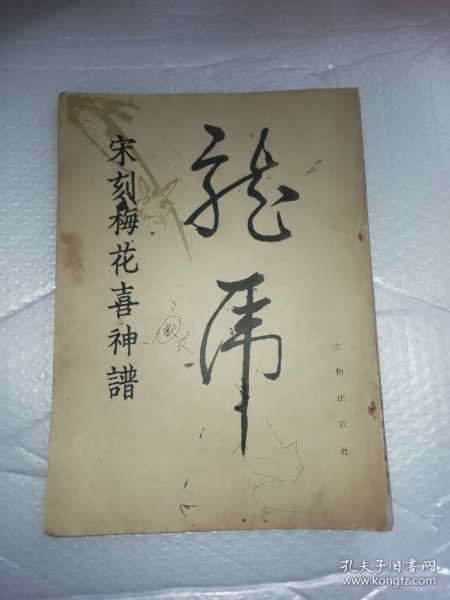 宋刻梅花喜神譜
龍
虎
文物出版社
孔夫子旧书网
www.kongfz.com